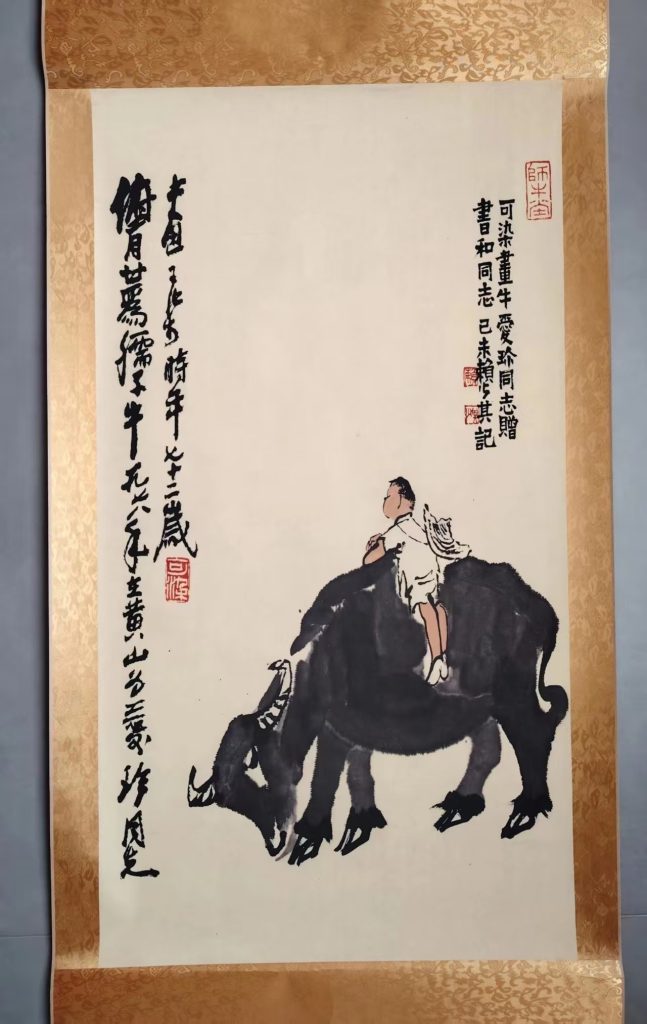 師牛堂
可染畫牛愛珍同志贈
書和同志 己未賴少其記
俯首甘爲孺子牛 一九七八年在黃山为愛珍同志
可染 時年七十二歲
可染